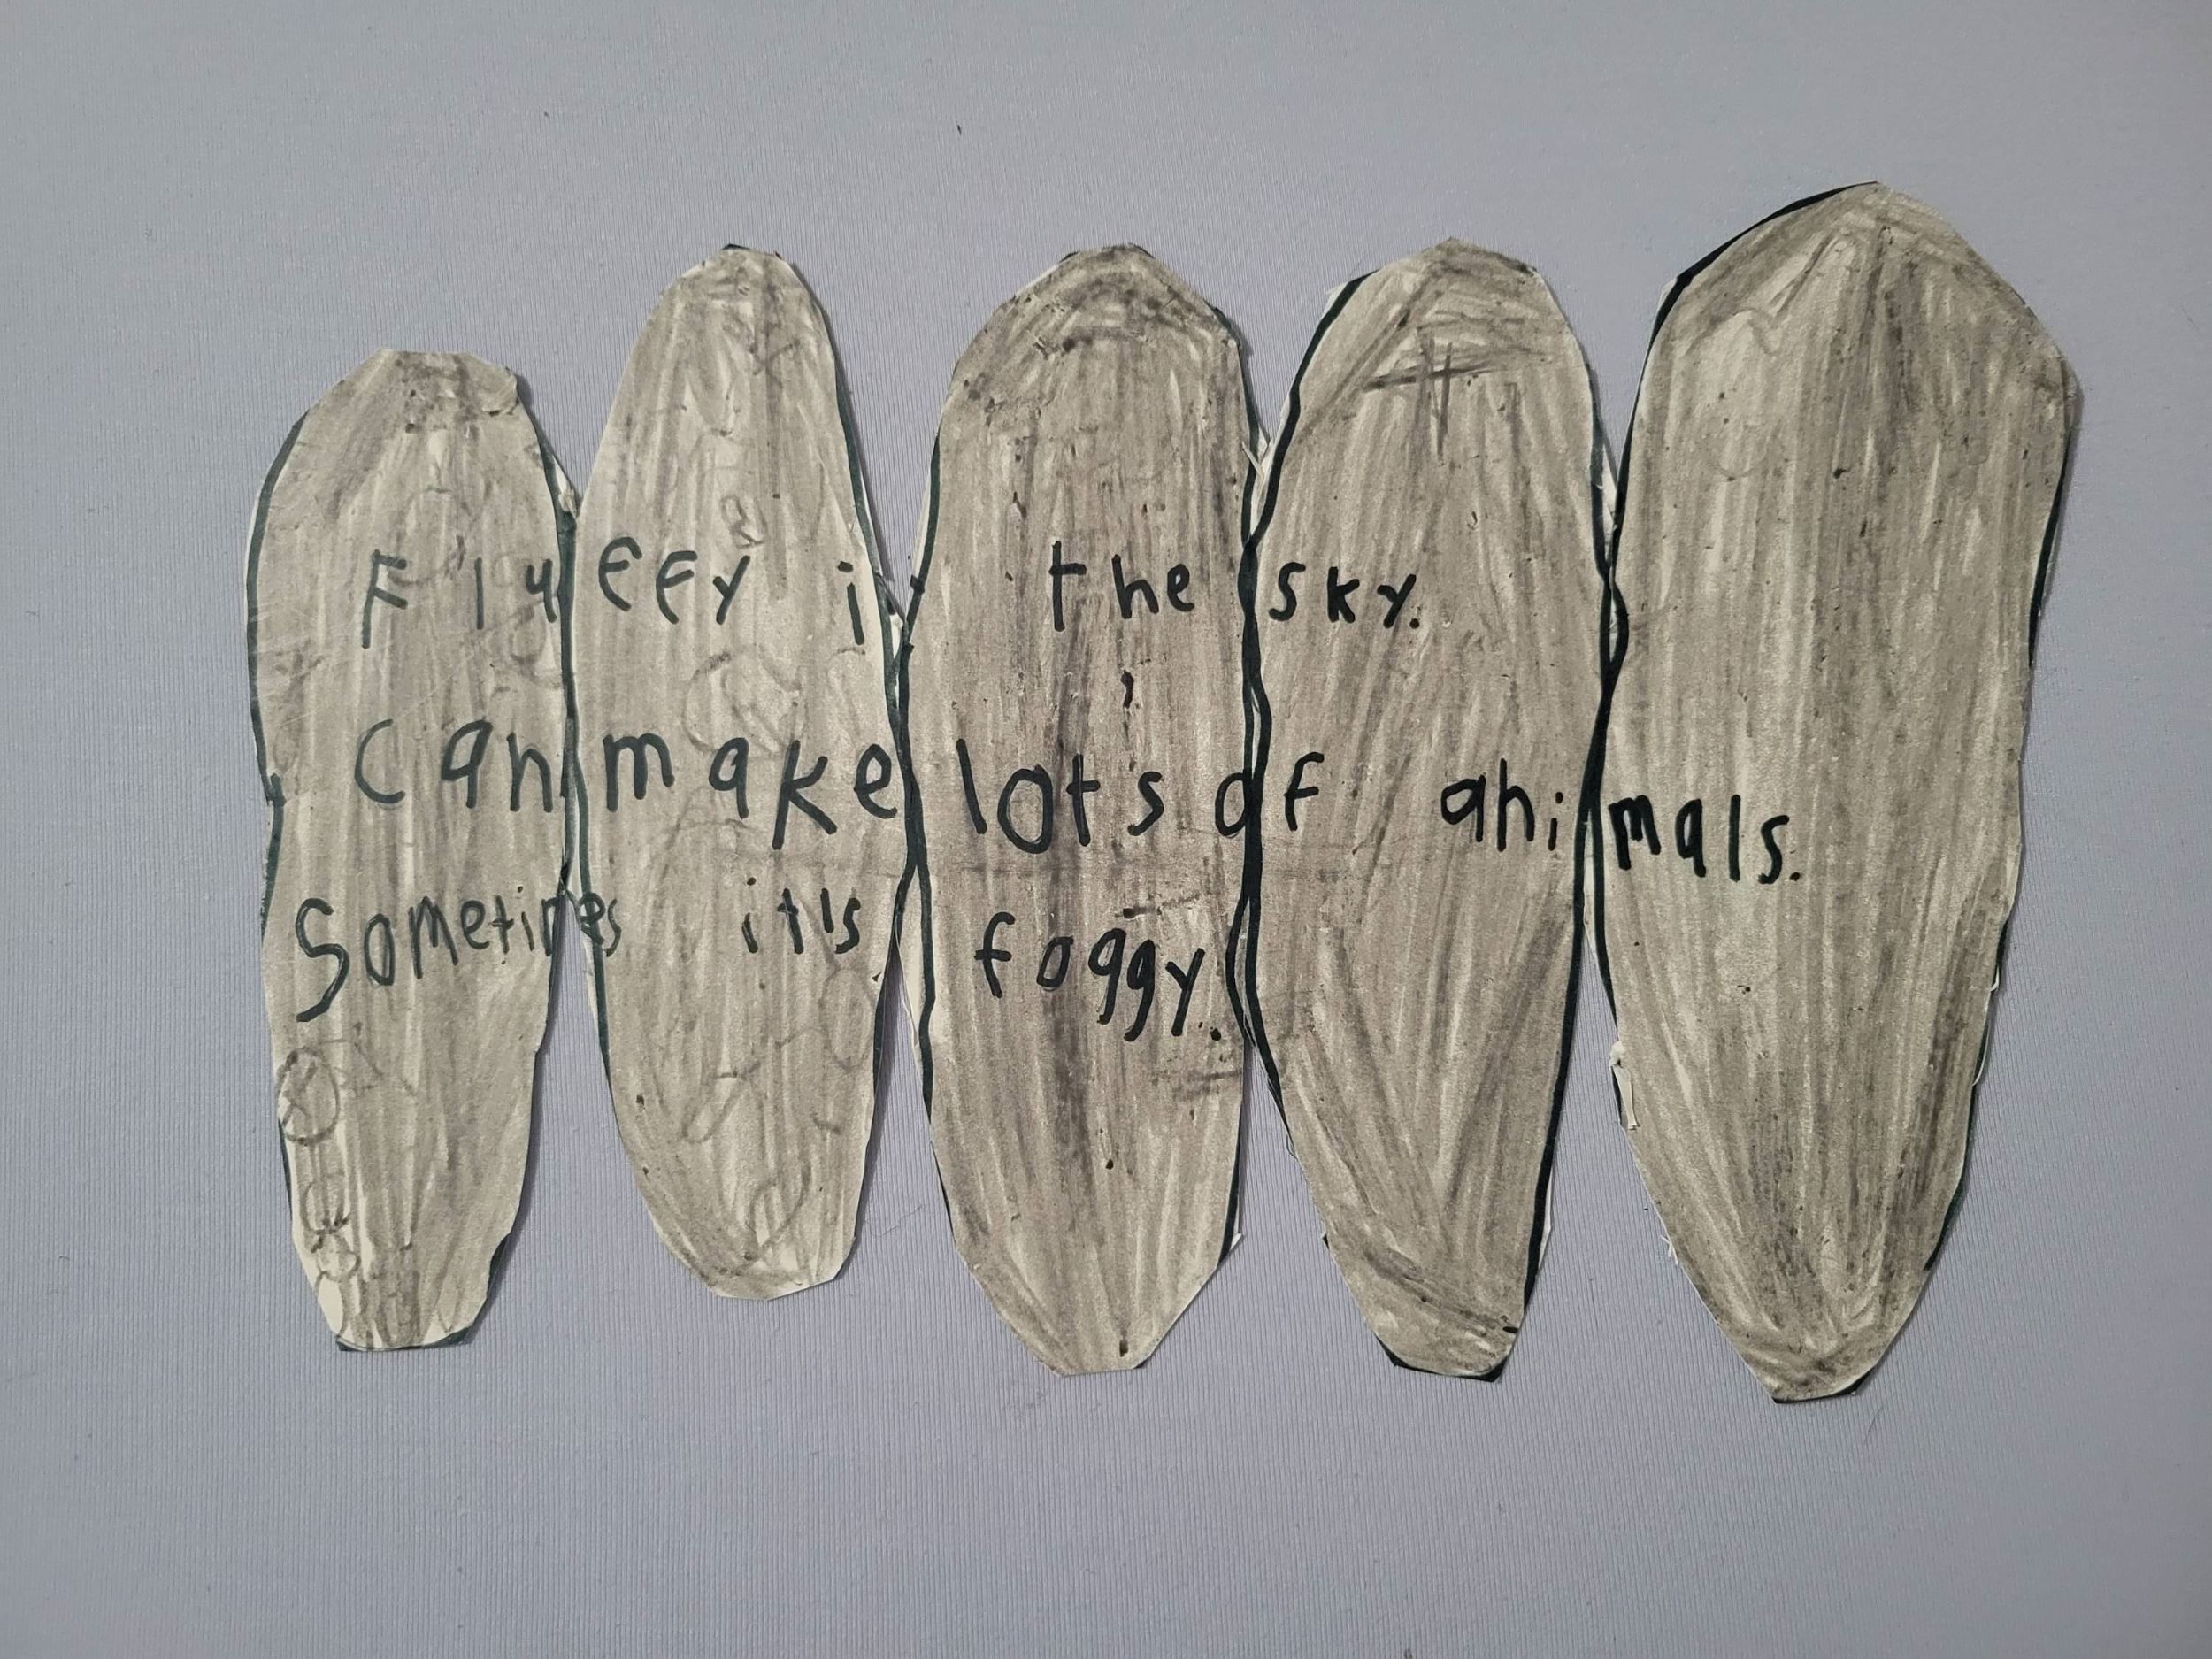 Fluffy i the sky.
can make lots of animals.
Sometimes it's foggy.